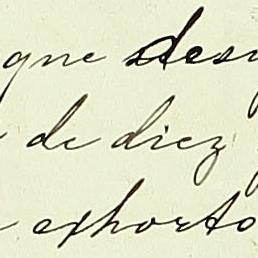 que des
de diez
exhorto